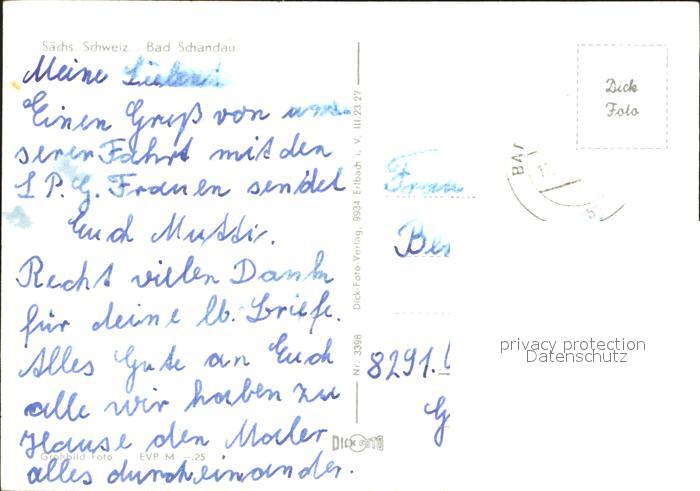 Sächs. Schweiz. Bad Schandau
Meine Lieben!
Einen Gruß von un-
serer Fahrt mit den
LPG. Frauen sendet
Euch Mutti.
Recht vielen Dank
für deine lb. Briefe.
Alles Gute an Euch
alle wir haben zu
Hause den Maler
alles durcheinander.
Großbild-Foto EVP M -.25
Nr. 3398 Dick-Foto-Verlag, 9934 Erlbach i. V. III/23/27
DICK FOTO
Dick
Foto
BA
Frau
8291.
privacy protection
Datenschutz